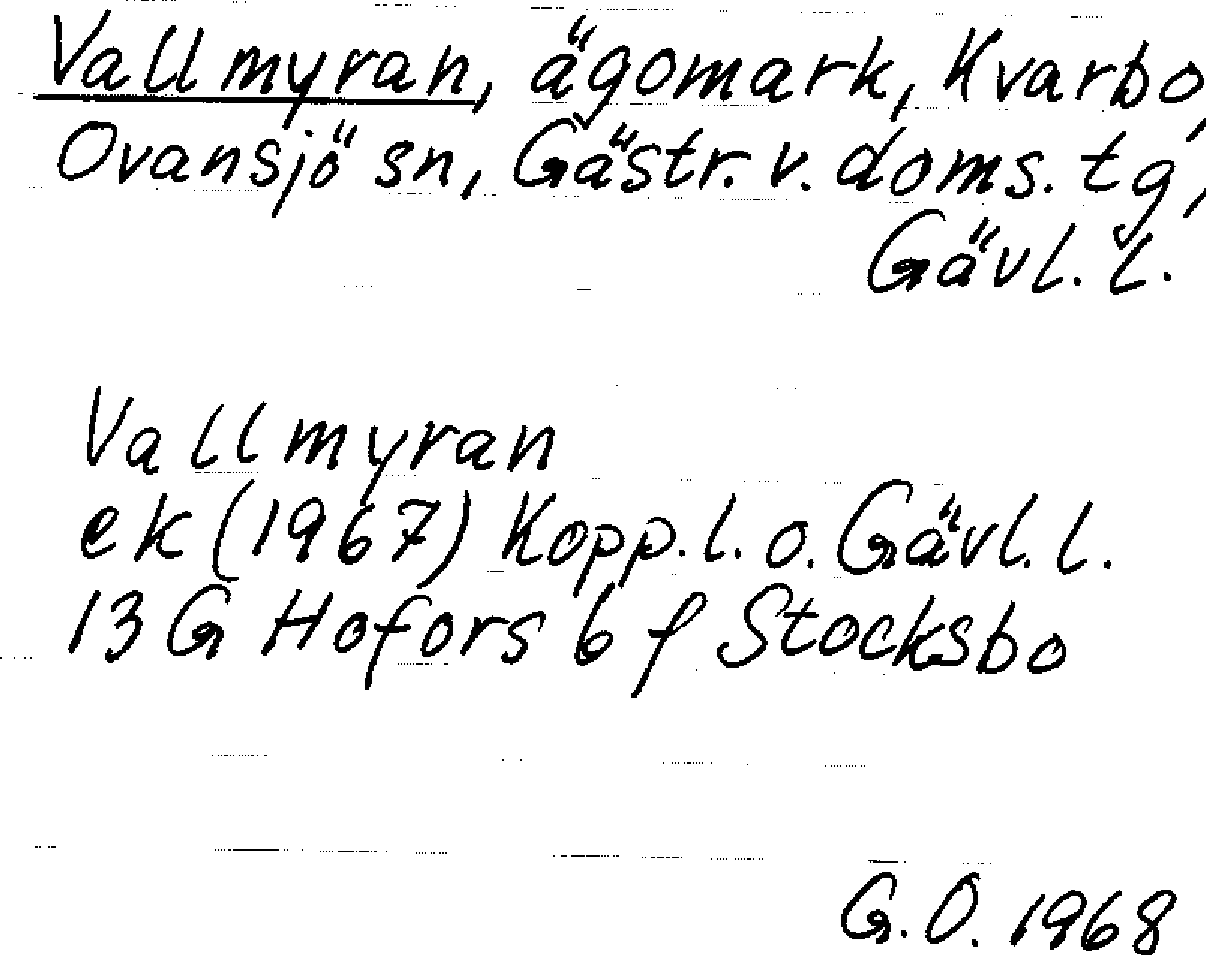 Vallmyran, ägomark, Kvarbo,
Ovansjö sn, Gästr. v. doms. tg,
Gävl. l.
Vallmyran
ek (1967) Kopp. l. o. Gävl. l.
13 G Hofors 6 f Stocksbo
G.O. 1968